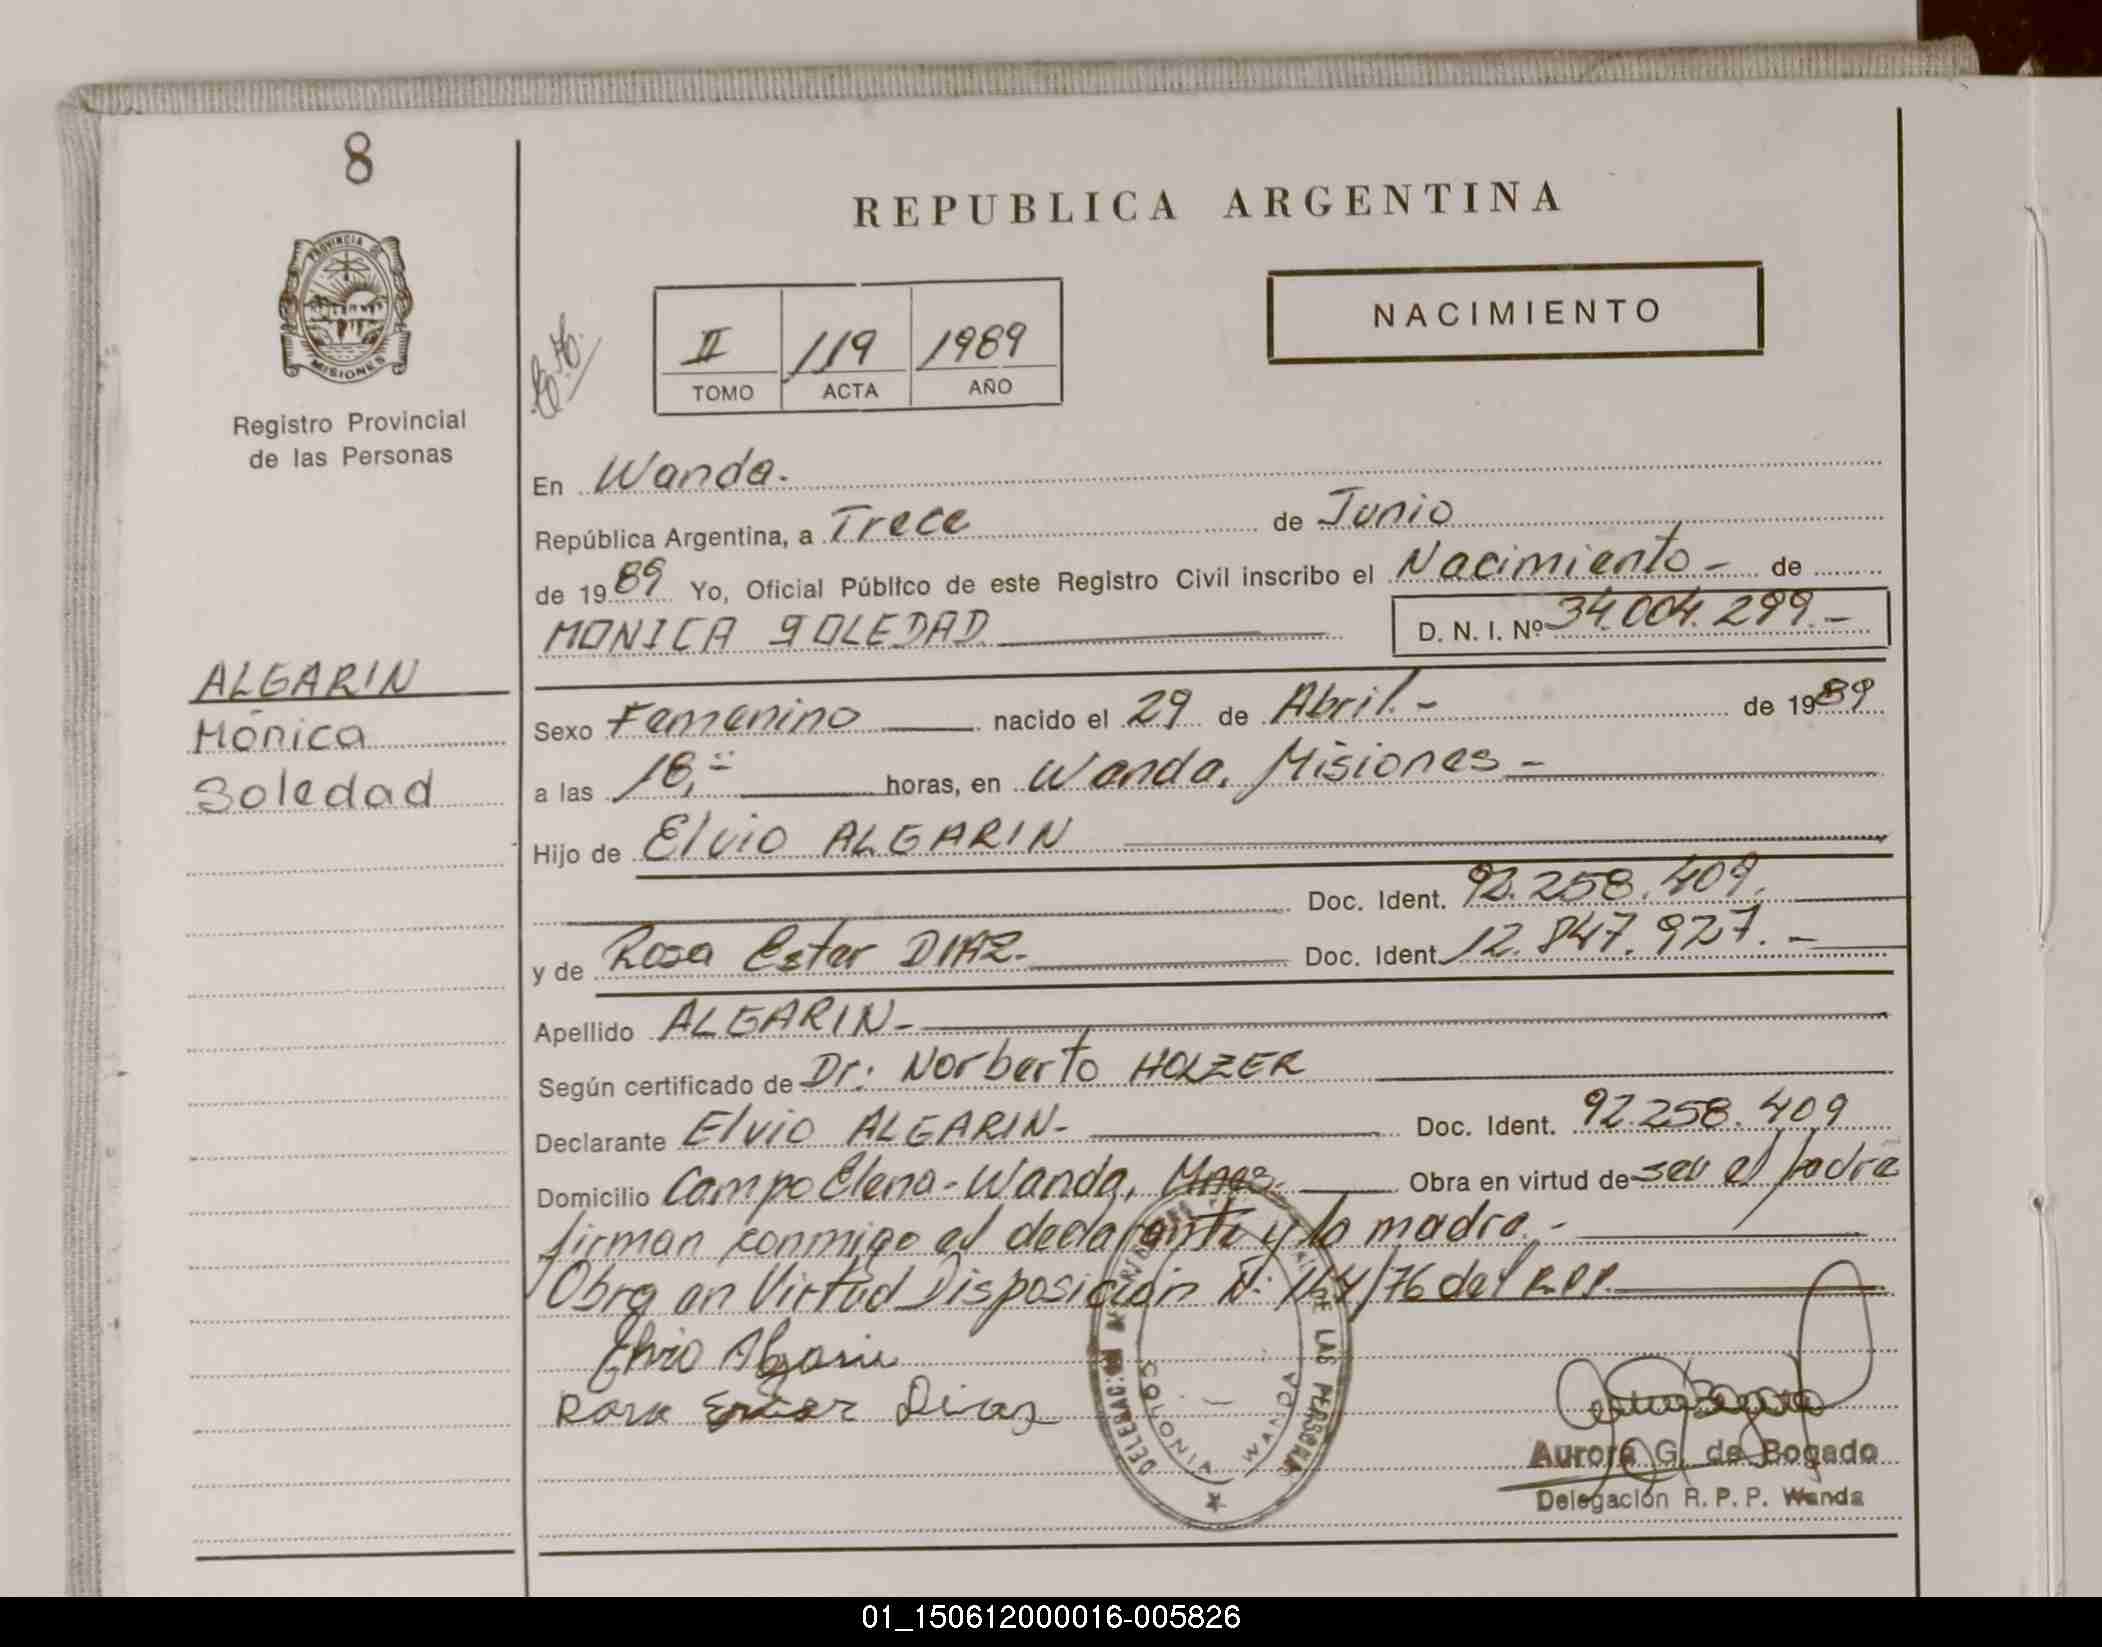 8
PROVINCIA DE
MISIONES
Registro Provincial
de las Personas
ALGARIN
Mónica
Soledad
REPUBLICA ARGENTINA
NACIMIENTO
II 119 1989
TOMO ACTA AÑO
En Wanda.
República Argentina, a Trece de Junio
de 1989 Yo, Oficial Público de este Registro Civil inscribo el Nacimiento - de
MONICA SOLEDAD D. N. I. Nº 34.004.299.-
Sexo Femenino nacido el 29 de Abril.- de 1989
a las 18,- horas, en Wanda, Misiones -
Hijo de Elvio ALGARIN
Doc. Ident. 92.258.409.
y de Rosa Ester DIAZ.- Doc. Ident. 12.847.927.-
Apellido ALGARIN-
Según certificado de Dr. Norberto HOLZER
Declarante Elvio ALGARIN- Doc. Ident. 92.258.409
Domicilio Campo Elena-Wanda, Mnes. Obra en virtud de ser el padre
firman conmigo el declarante y la madre.-
Obra en Virtud Disposición N: 144/76 del R.P.P.
Elvio Algarin
Rosa Ester Diaz
COLONIA WANDA
DE LAS PERSONAS
Aurora G. de Bogado
Delegación R. P. P. Wanda
01_150612000016-005826